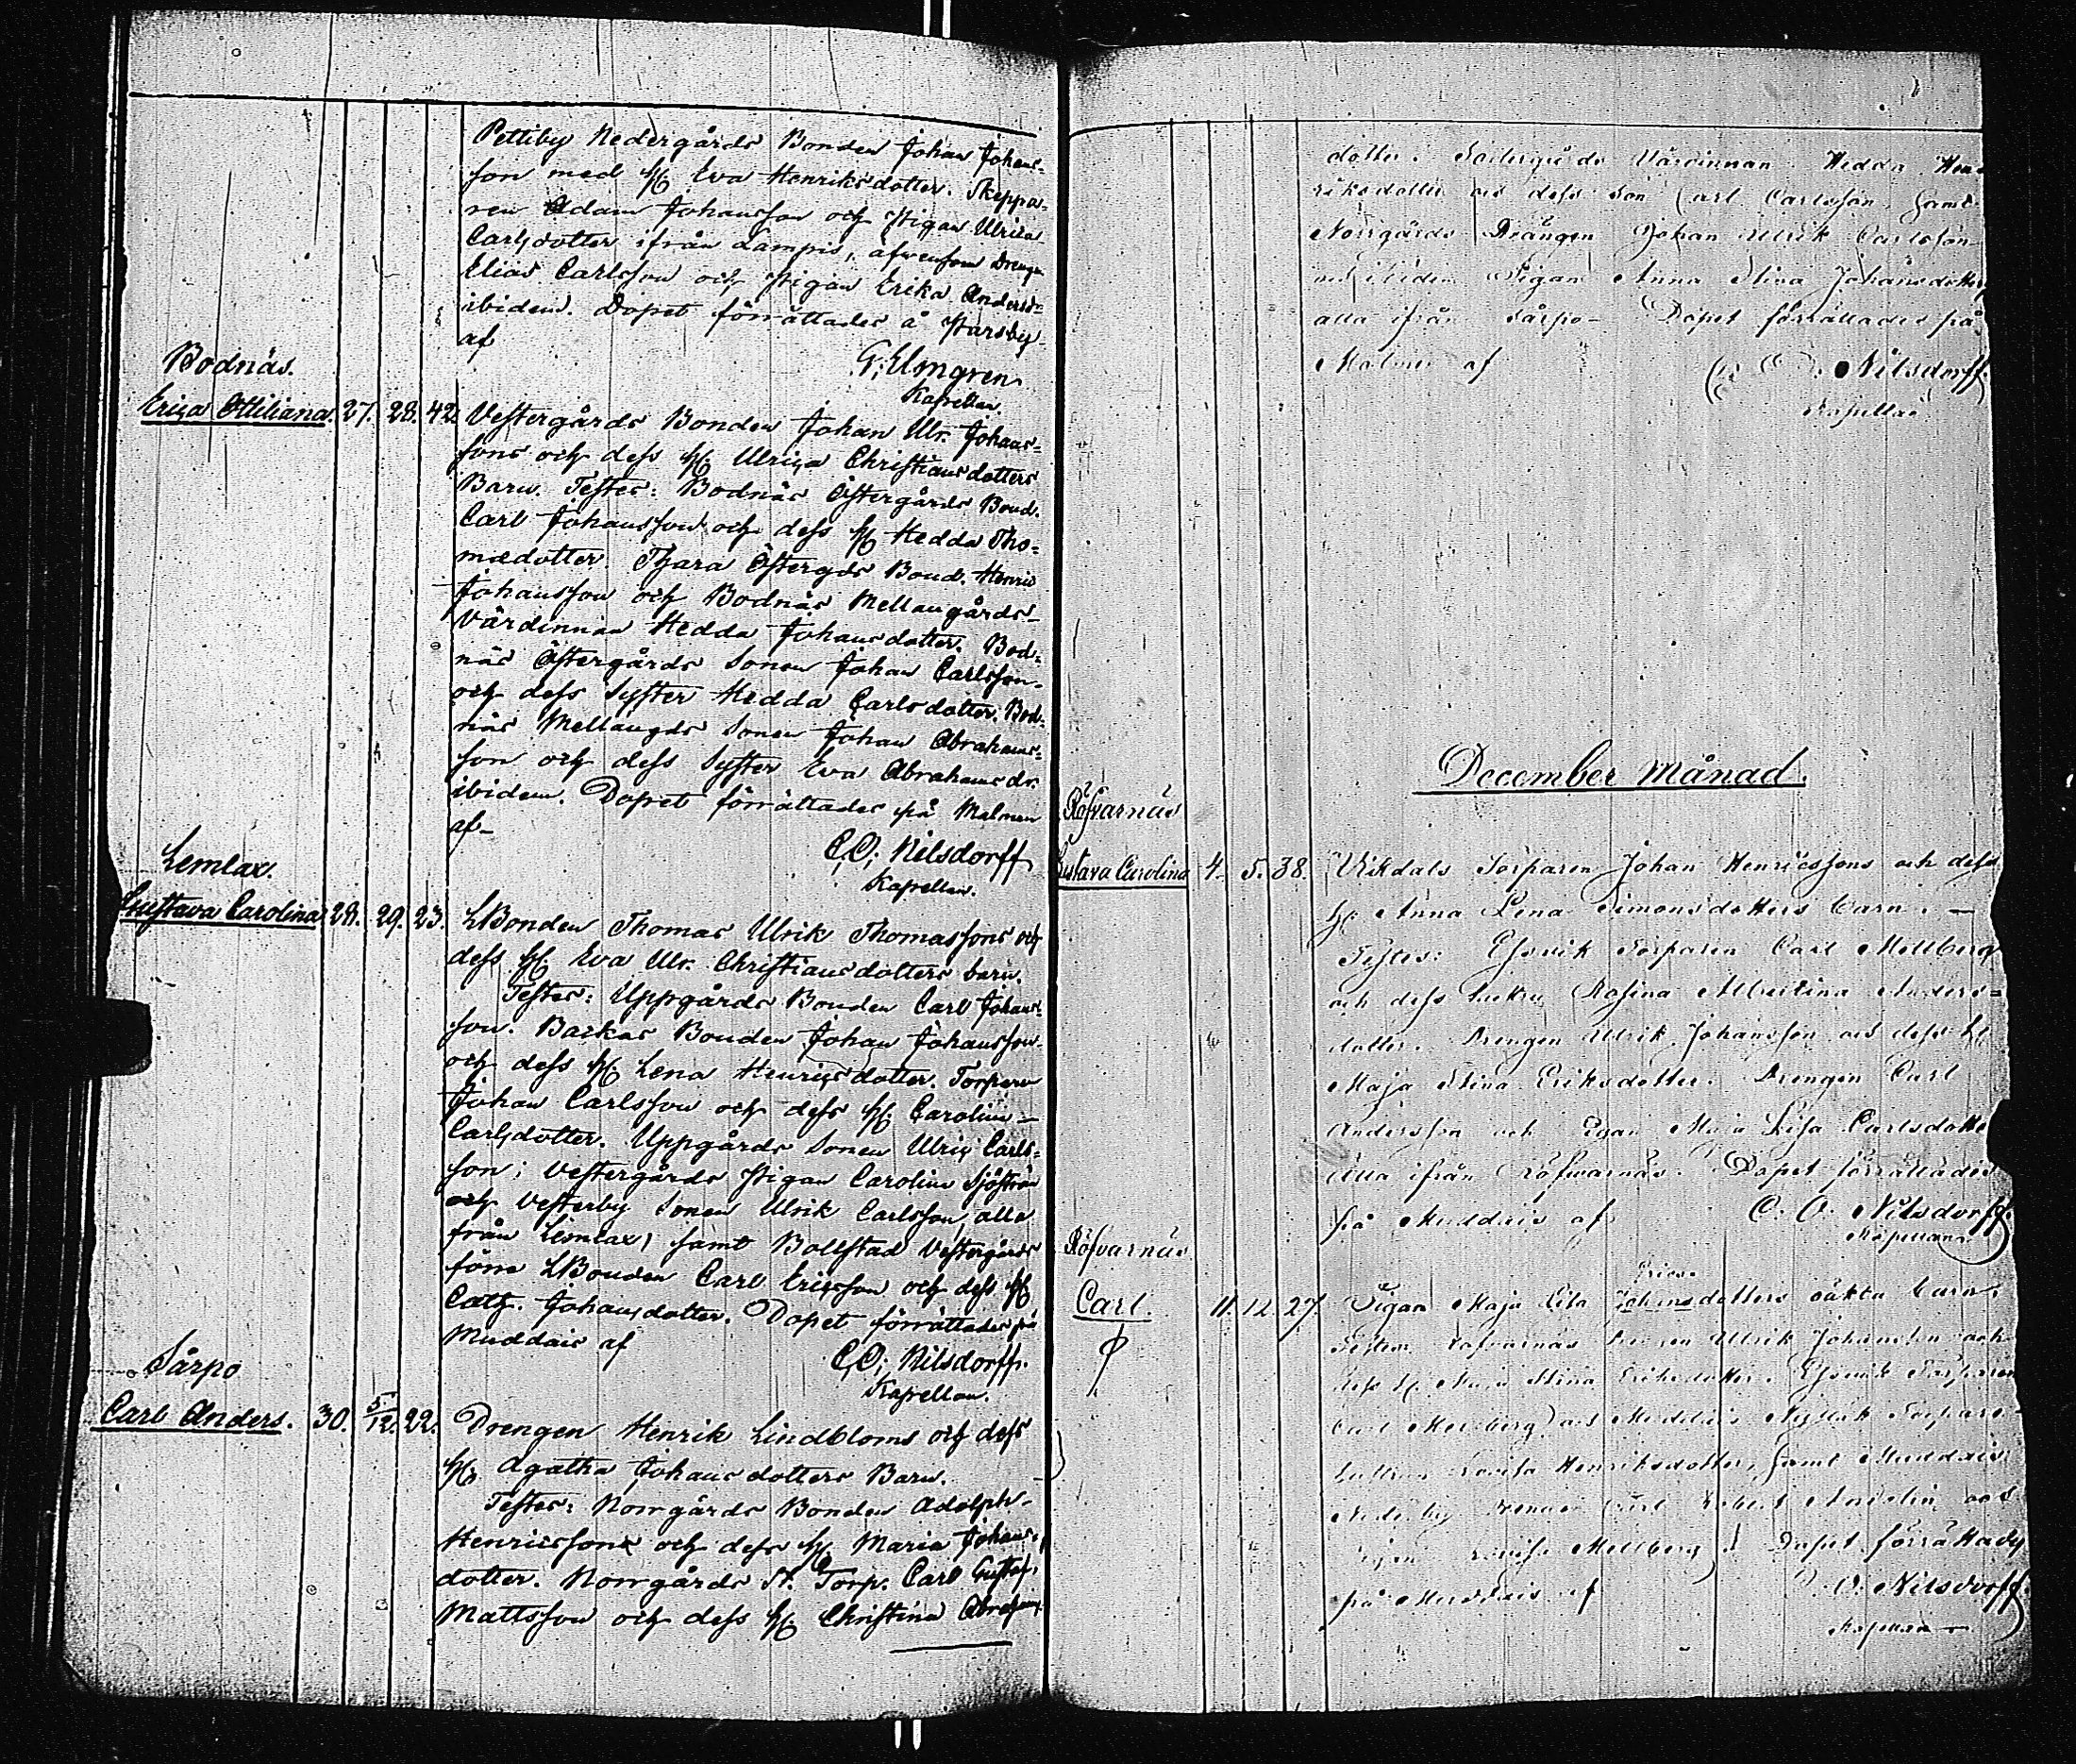 Pettiby Nedergårds Bonden Johan Johans-
son med H. Eva Henriksdotter. Skeppa-
ren Adam Johansson och Pigan Ulrica
Carlsdotter ifrån Lampis, äfvensom Dreng.
Elias Carlsson och Pigan Erika Andersd:
ibidem. Dopet förrättades å Parsby
af
G. Elmgren
Kapellan.
Bodnäs.
Erica Ottiliana. 27. 28. 42. Vestergårds Bonden Johan Ulr. Johans-
sons och dess H. Ulrica Christiansdotters
Barn. Testes: Bodnäs Östergårds Bond.
Carl Johansson och dess H. Hedda Tho-
medotter. Tjara Östergds Bond. Henric
Johansson och Bodnäs Mellangårds
Värdinnan Hedda Johansdotter. Bod-
näs Östergårds Sonen Johan Carlsson
och dess Syster Hedda Carlsdotter. Bod-
näs Mellangds Sonen Johan Abrahams-
son och dess Syster Eva Abrahamsdr.
ibidem. Dopet förrättades på Malmen
af
C. O. Nilsdorff
Kapellan.
Lemlax.
Gustava Carolina 28. 29. 23. LBonden Thomas Ulrik Thomassons och
dess H. Eva Ulr. Christiansdotters barn.
Testes: Uppgårds Bonden Carl Johans-
son. Backas Bonden Johan Johansson
och dess H. Lena Henricsdotter. Torparn
Johan Carlsson och dess H. Carolina
Carlsdotter. Uppgårds Sonen Ulric Carls-
son; Vestergårds Pigan Carolina Sjöström
och Vesterby Sonen Ulrik Carlsson, alla
från Lemlax, samt Bollstad Vestergårds
förra LBonden Carl Ericsson och dess H
Cath. Johansdotter. Dopet förrättades på
Muddais af
C. O. Nilsdorff.
Kapellan.
Sårpo
Carl Anders. 30. 5/12. 22. Drengen Henrik Lindbloms och dess
H. Agatha Johansdotters Barn.
Testes: Norrgårds Bonden Adolph
Henricsson och dess H. Maria Johans-
dotter. Norrgårds St. Torp. Carl Gustaf
Mattsson och dess H. Christina Abrahams-
dotter. Södergårds Värdinnan Hedda Hen-
riksdotter och dess Son Carl Carlsson, samt
Norrgårds Drängen Johan Ulrik Carlsson
och ibidem Pigan Anna Stina Johansdotter
alla ifrån Sårpo. Dopet förrättades på
Malmen af
C. O. Nilsdorff.
Kapellan
December Månad.
Röfvarnäs
Gustava Carolina 4. 5. 38. Vikdals Torparen Johan Henricssons och dess
H. Anna Lena Simonsdotters Barn.
Testes: Torparen Carl Mellberg
och dess Rosina Albertina Anders-
dotter. Drengen Ulrik Johansson och dess H.
Maja Stina Eriksdotter. Drengen Carl
Andersson och Pigan Maja Lisa Carlsdotter
Alla ifrån Röfvarnäs. Dopet förrättades
på Muddais af C. O. Nilsdorff.
Kapellan
Röfvarnäs
Carl. 11. 12. 27. Pigan Maja Lisa Johansdotters oäkta barn.
Erics-
Testes: Röfvarnäs Ulrik Johansson och
dess H. Maja Stina Eriksdotter. Torparen
Carl Mellberg och Muddais
Lovisa Henriksdotter, samt Muddais
Nederby Carl och
Pigan Lovisa Mellberg. Dopet förrättades
på Muddais af C. O. Nilsdorff.
Kapellan